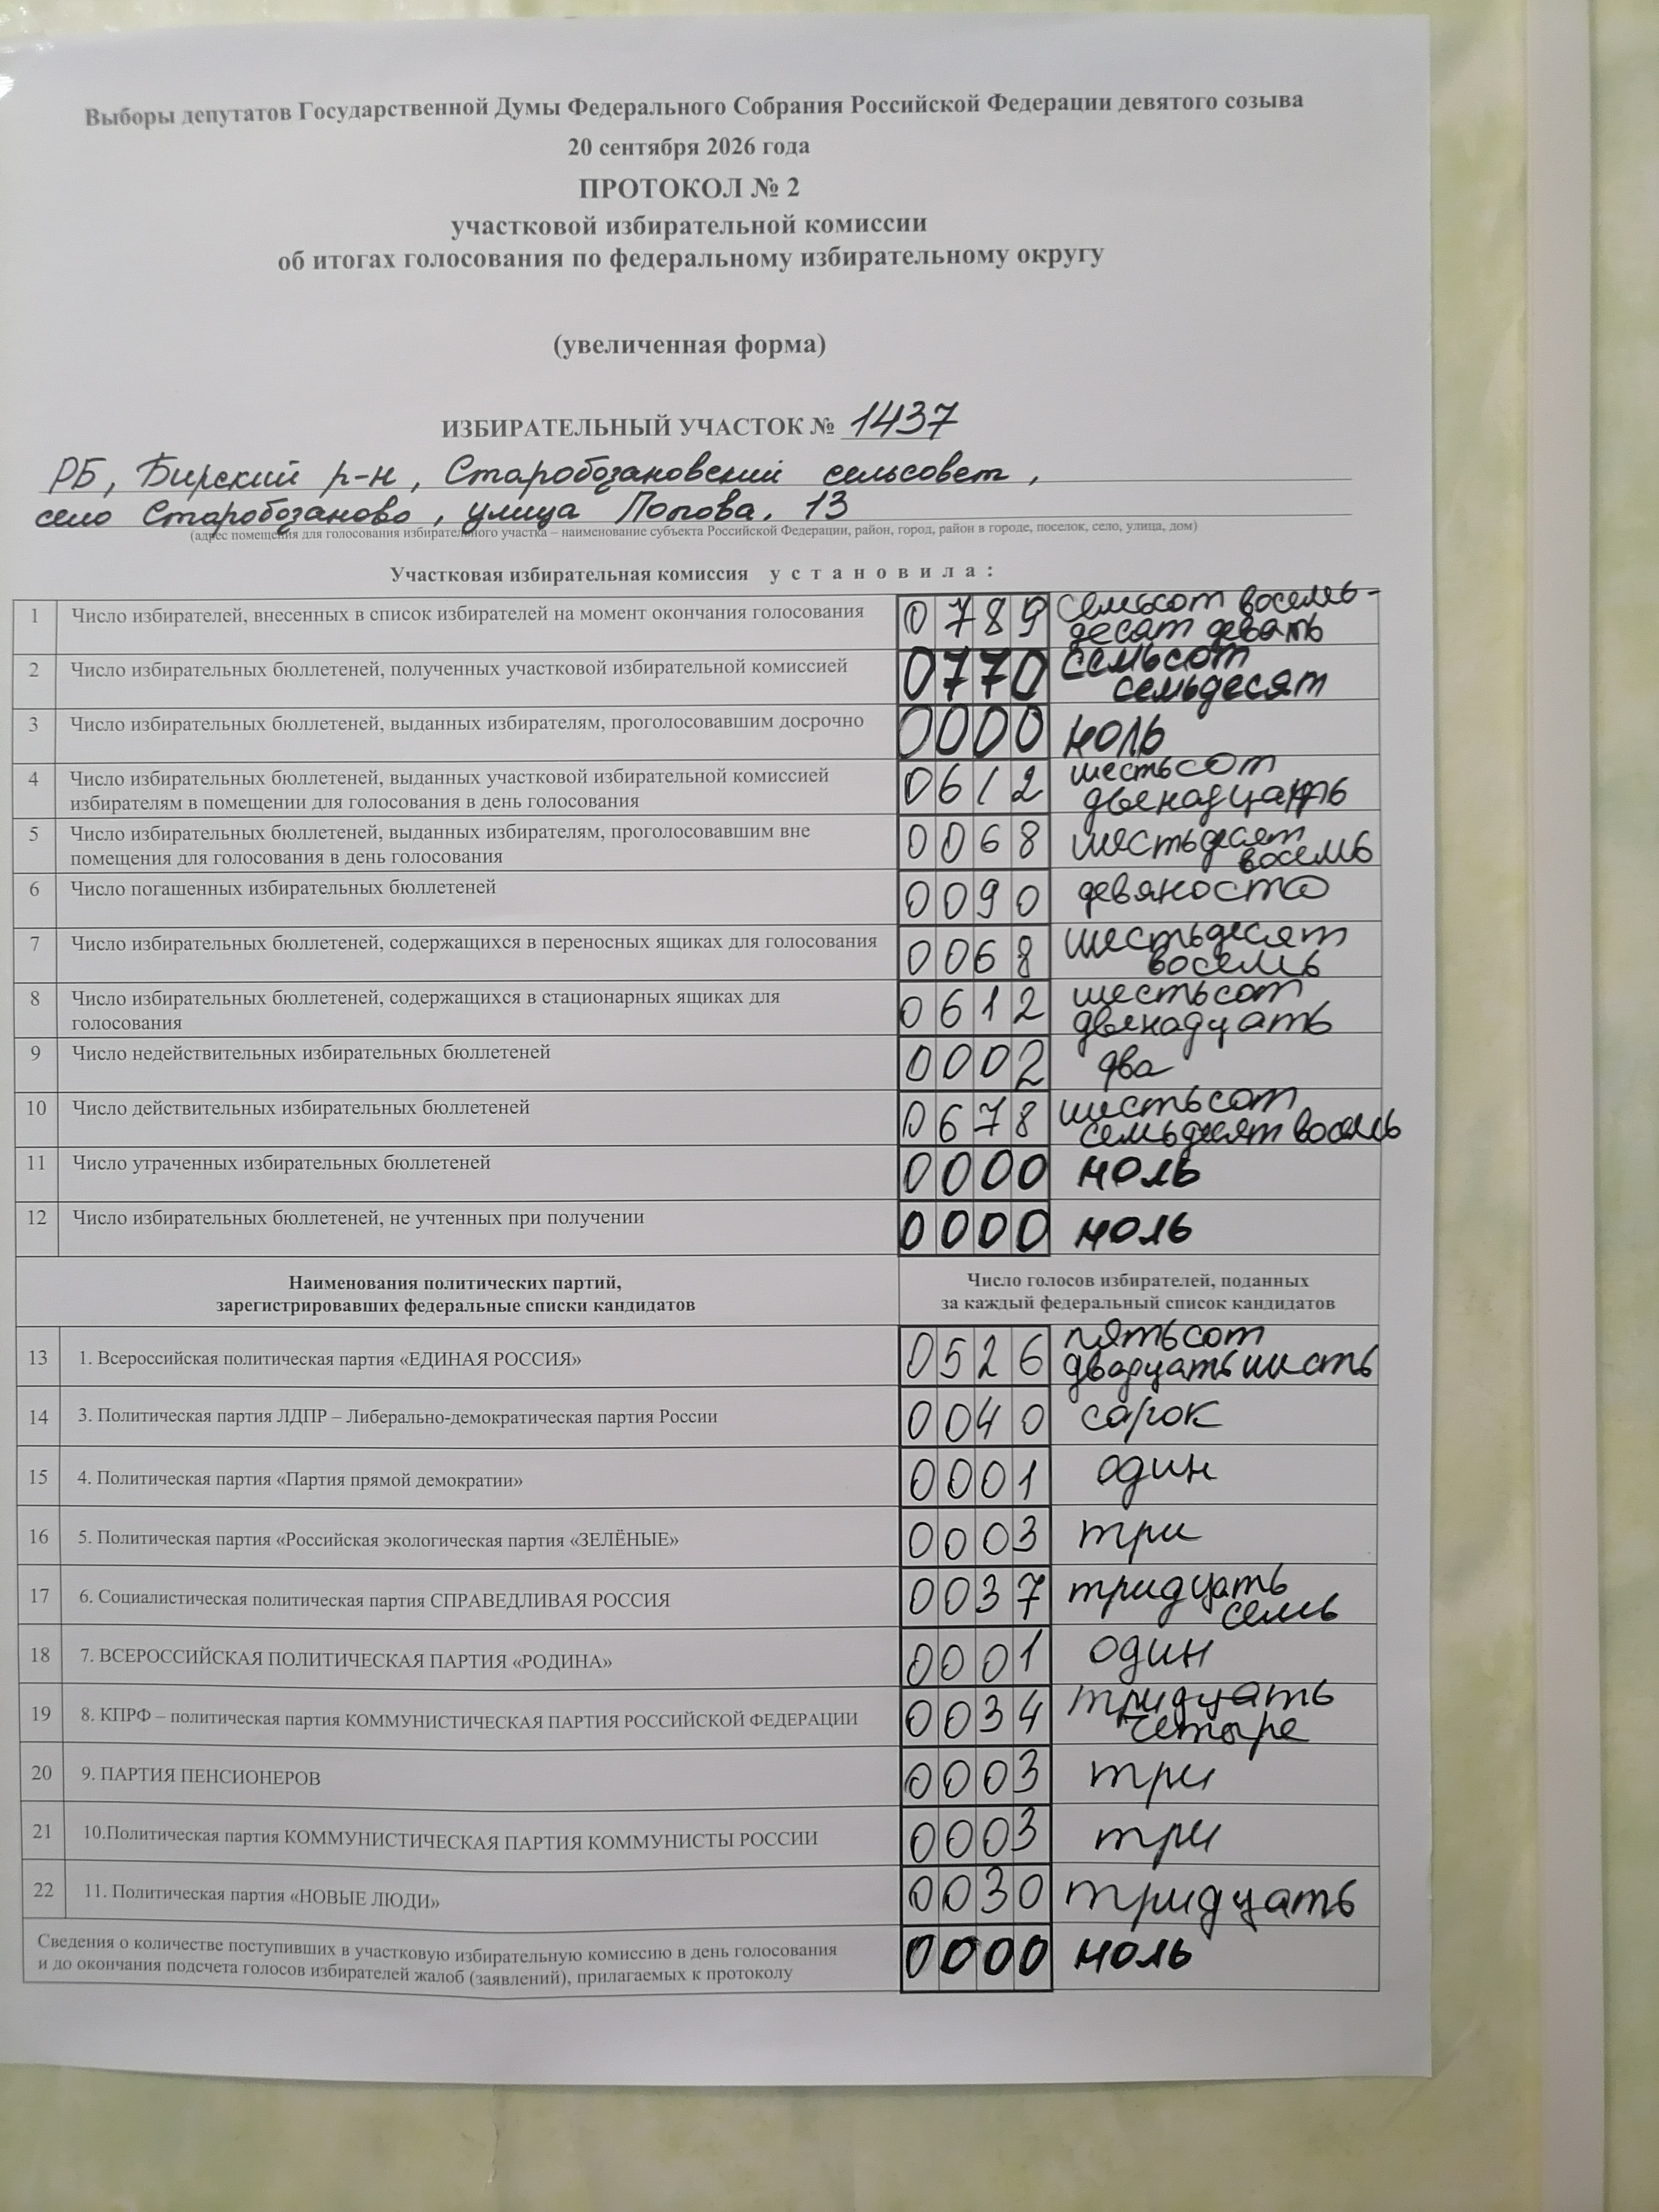 Выборы депутатов Государственной Думы Федерального Собрания Российской Федерации девятого созыва
20 сентября 2026 года
ПРОТОКОЛ № 2
участковой избирательной комиссии
об итогах голосования по федеральному избирательному округу
(увеличенная форма)
ИЗБИРАТЕЛЬНЫЙ УЧАСТОК № 1437
РБ, Бирский р-н, Старобозановский сельсовет,
село Старобозаново, улица Попова, 13
(адрес помещения для голосования избирательного участка – наименование субъекта Российской Федерации, район, город, район в городе, поселок, село, улица, дом)
Участковая избирательная комиссия установила:
1 Число избирателей, внесенных в список избирателей на момент окончания голосования 0789 семьсот восемь-
десят девять
2 Число избирательных бюллетеней, полученных участковой избирательной комиссией 0770 семьсот
семьдесят
3 Число избирательных бюллетеней, выданных избирателям, проголосовавшим досрочно 0000 ноль
4 Число избирательных бюллетеней, выданных участковой избирательной комиссией 0612 шестьсот
избирателям в помещении для голосования в день голосования двенадцать
5 Число избирательных бюллетеней, выданных избирателям, проголосовавшим вне 0068 шестьдесят
помещения для голосования в день голосования восемь
6 Число погашенных избирательных бюллетеней 0090 девяносто
7 Число избирательных бюллетеней, содержащихся в переносных ящиках для голосования 0068 шестьдесят
восемь
8 Число избирательных бюллетеней, содержащихся в стационарных ящиках для 0612 шестьсот
голосования двенадцать
9 Число недействительных избирательных бюллетеней 0002 два
10 Число действительных избирательных бюллетеней 0678 шестьсот
семьдесят восемь
11 Число утраченных избирательных бюллетеней 0000 ноль
12 Число избирательных бюллетеней, не учтенных при получении 0000 ноль
Наименования политических партий, Число голосов избирателей, поданных
зарегистрировавших федеральные списки кандидатов за каждый федеральный список кандидатов
13 1. Всероссийская политическая партия «ЕДИНАЯ РОССИЯ» 0526 пятьсот
двадцать шесть
14 3. Политическая партия ЛДПР – Либерально-демократическая партия России 0040 сорок
15 4. Политическая партия «Партия прямой демократии» 0001 один
16 5. Политическая партия «Российская экологическая партия «ЗЕЛЁНЫЕ» 0003 три
17 6. Социалистическая политическая партия СПРАВЕДЛИВАЯ РОССИЯ 0037 тридцать
семь
18 7. ВСЕРОССИЙСКАЯ ПОЛИТИЧЕСКАЯ ПАРТИЯ «РОДИНА» 0001 один
19 8. КПРФ – политическая партия КОММУНИСТИЧЕСКАЯ ПАРТИЯ РОССИЙСКОЙ ФЕДЕРАЦИИ 0034 тридцать
четыре
20 9. ПАРТИЯ ПЕНСИОНЕРОВ 0003 три
21 10.Политическая партия КОММУНИСТИЧЕСКАЯ ПАРТИЯ КОММУНИСТЫ РОССИИ 0003 три
22 11. Политическая партия «НОВЫЕ ЛЮДИ» 0030 тридцать
Сведения о количестве поступивших в участковую избирательную комиссию в день голосования 0000 ноль
и до окончания подсчета голосов избирателей жалоб (заявлений), прилагаемых к протоколу